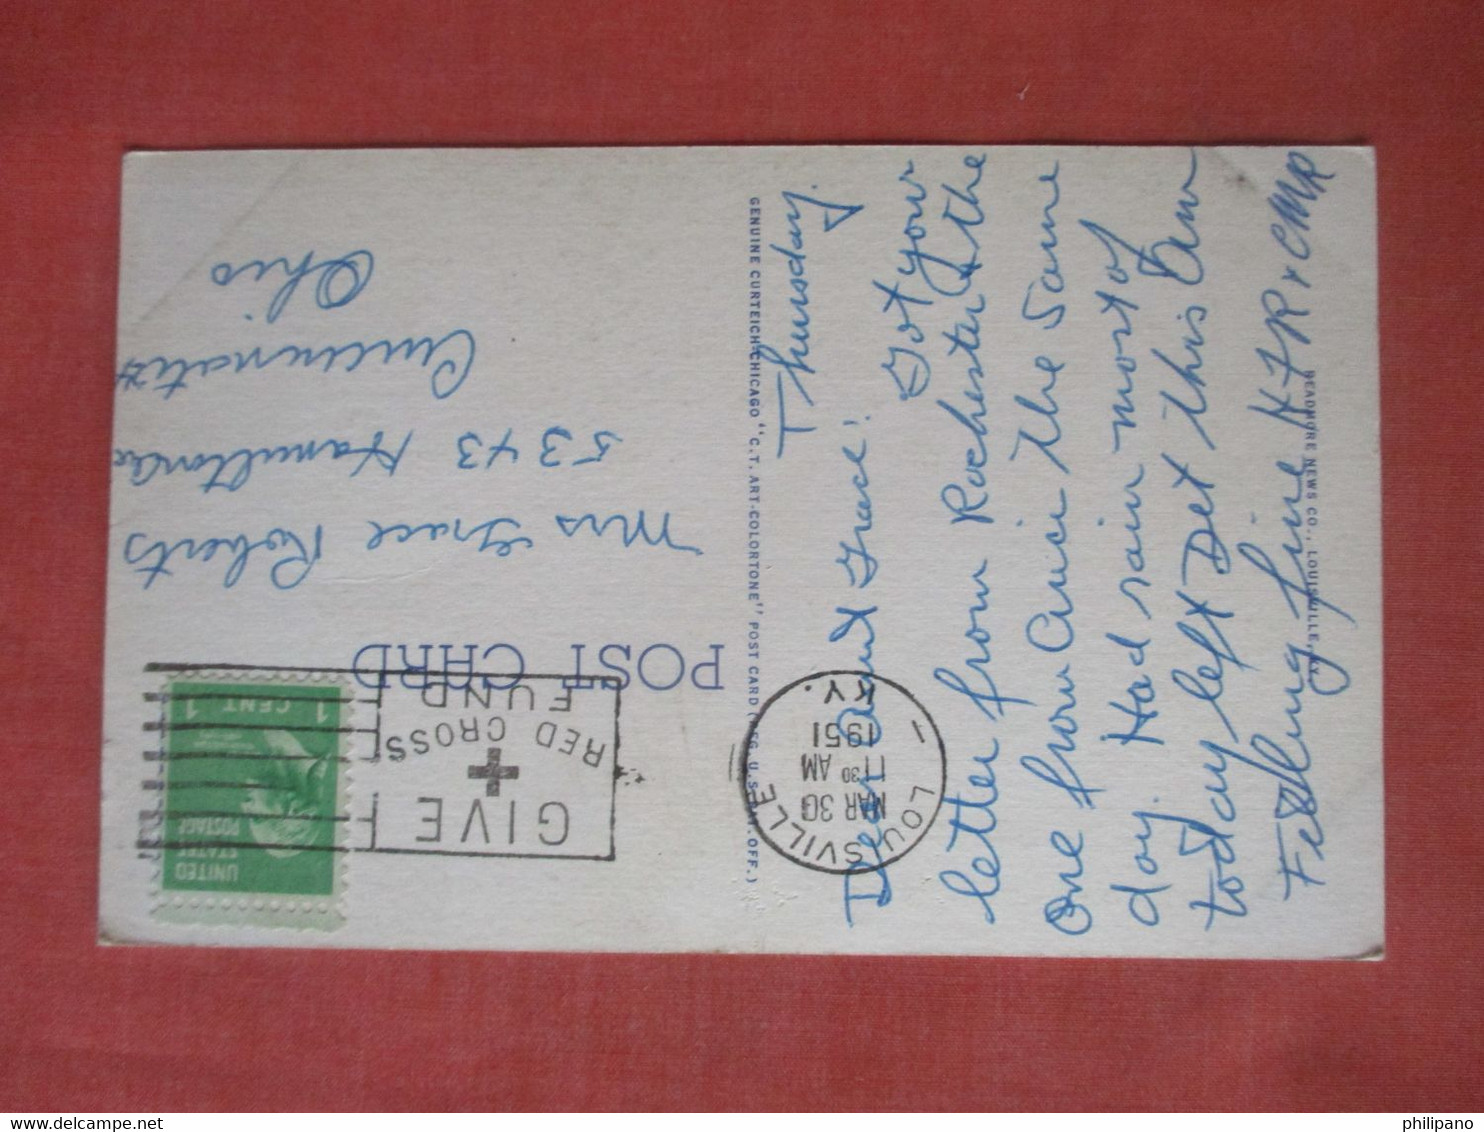 Thursday.
Dear Aunt Grace! Got your
letter from Rochester & the
one from Cinci the same
day. Had rain most of
today left Det this Am
Feeling fine HFR & CMR
GENUINE CURTEICH-CHICAGO "C.T. ART-COLORTONE" POST CARD (REG. U.S. PAT. OFF.)
READMORE NEWS CO., LOUISVILLE, KY.
POST CARD
LOUISVILLE
MAR 30
11 30 AM
1951
KY.
1
GIVE
RED CROSS
FUND
UNITED
STATES
POSTAGE
1 CENT 1
Mrs Grace Roberts
5343 Hamilton
Cincinnati
Ohio
philipano